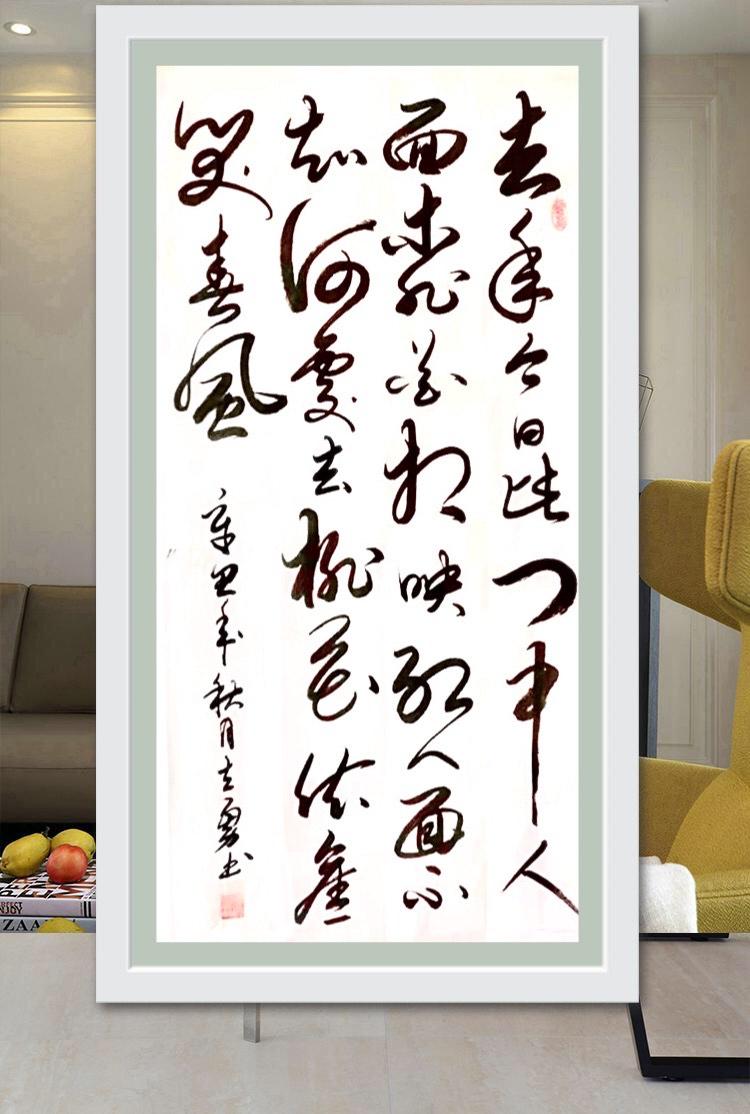 去年今日此门中人
面桃花相映红人面不
知何處去桃花依舊
笑春風
辛丑年秋月
书